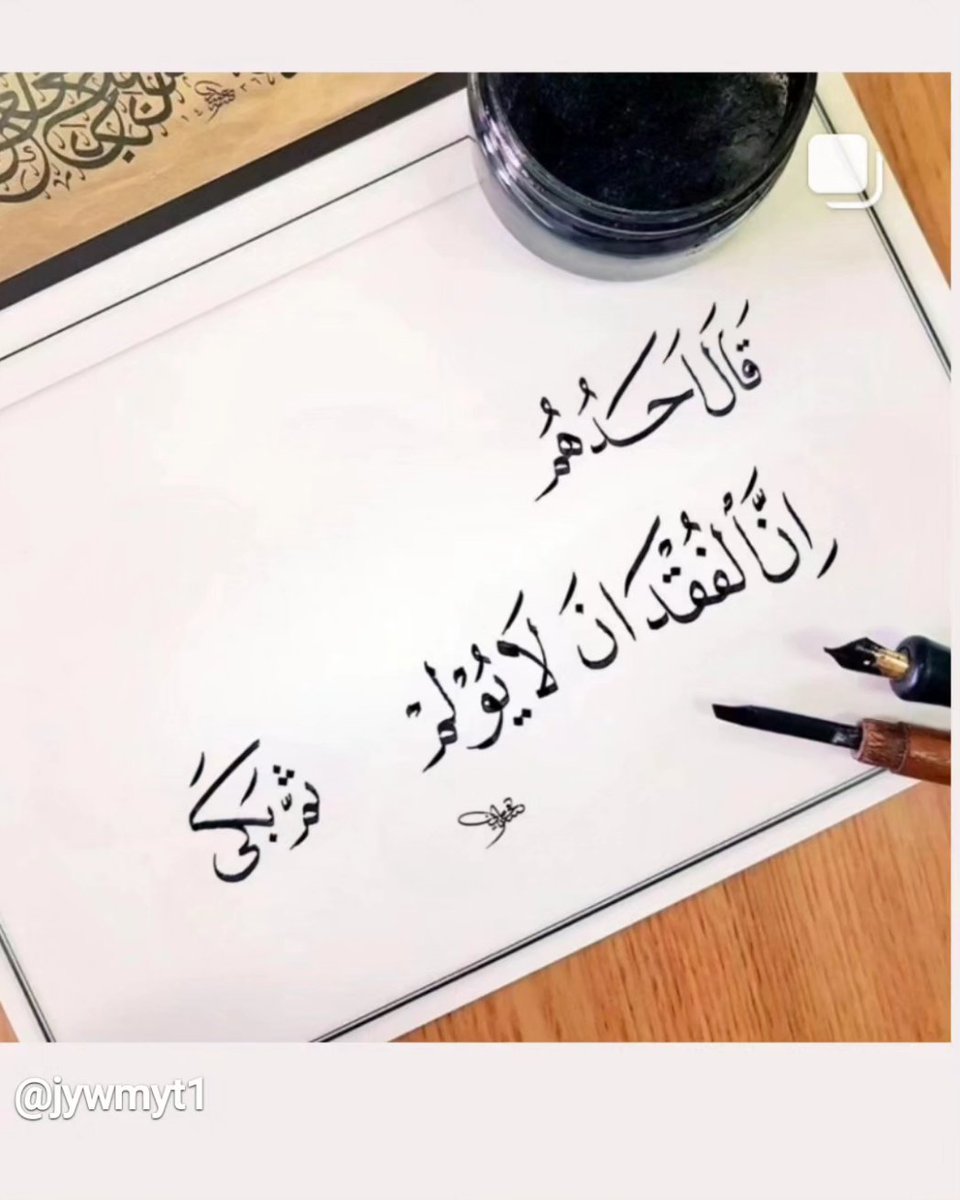 قَالَ اَحَدُهُم
اِنَّ ألفُقْدَانَ لَا يُؤْلِمْ
ثمَّ بَكَىَ
@jywmyt1